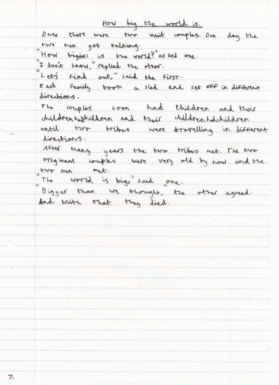 How big the world is.
Once there were two inuit couples. One day the
two men got talking.
"How bigger is the world?" asked one.
"I don't know," replied the other.
"Let's find out," said the first.
Each family took a sled and set off in different
directions.
The couples soon had children and their
children had children and their children had children
until two tribes were travelling in different
directions.
After many years the two tribes met. The two
original couples were very old by now and the
two men met.
"The world is big," said one.
"Bigger than we thought, the other agreed
And with that they died.
7.